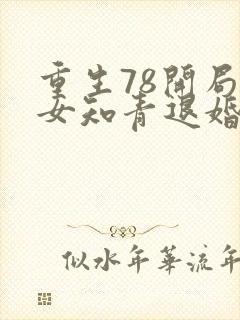 重生78開局
女知青退婚
似水年華流年